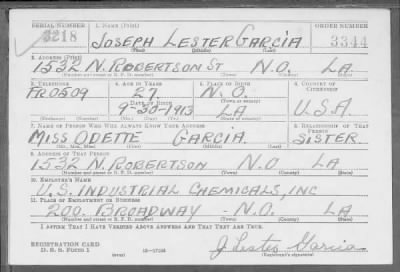 SERIAL NUMBER 1. NAME (Print) ORDER NUMBER
3218 JOSEPH LESTER GARCIA 3344
(First) (Middle) (Last)
2. ADDRESS (Print)
1532 N. ROBERTSON ST N.O. LA.
3. TELEPHONE 4. AGE IN YEARS 5. PLACE OF BIRTH 6. COUNTRY OF CITIZENSHIP
FR0509 27 N.O.
DATE OF BIRTH (Town or county)
9-20-1913 LA U.S.A
(Exchange) (Number) (Mo.) (Day) (Yr.) (State or country)
7. NAME OF PERSON WHO WILL ALWAYS KNOW YOUR ADDRESS 8. RELATIONSHIP OF THAT PERSON
MISS ODETTE GARCIA. SISTER.
(Mr., Mrs., Miss) (First) (Middle) (Last)
9. ADDRESS OF THAT PERSON
1532 N. ROBERTSON N.O LA
(Number and street or R. F. D. number) (Town) (County) (State)
10. EMPLOYER'S NAME
U.S. INDUSTRIAL CHEMICALS, INC
11. PLACE OF EMPLOYMENT OR BUSINESS
200. BROADWAY - N.O. LA
(Number and street or R. F. D. number) (Town) (County) (State)
I AFFIRM THAT I HAVE VERIFIED ABOVE ANSWERS AND THAT THEY ARE TRUE.
REGISTRATION CARD
D. S. S. Form 1 J Lester Garcia
(Registrant's signature)